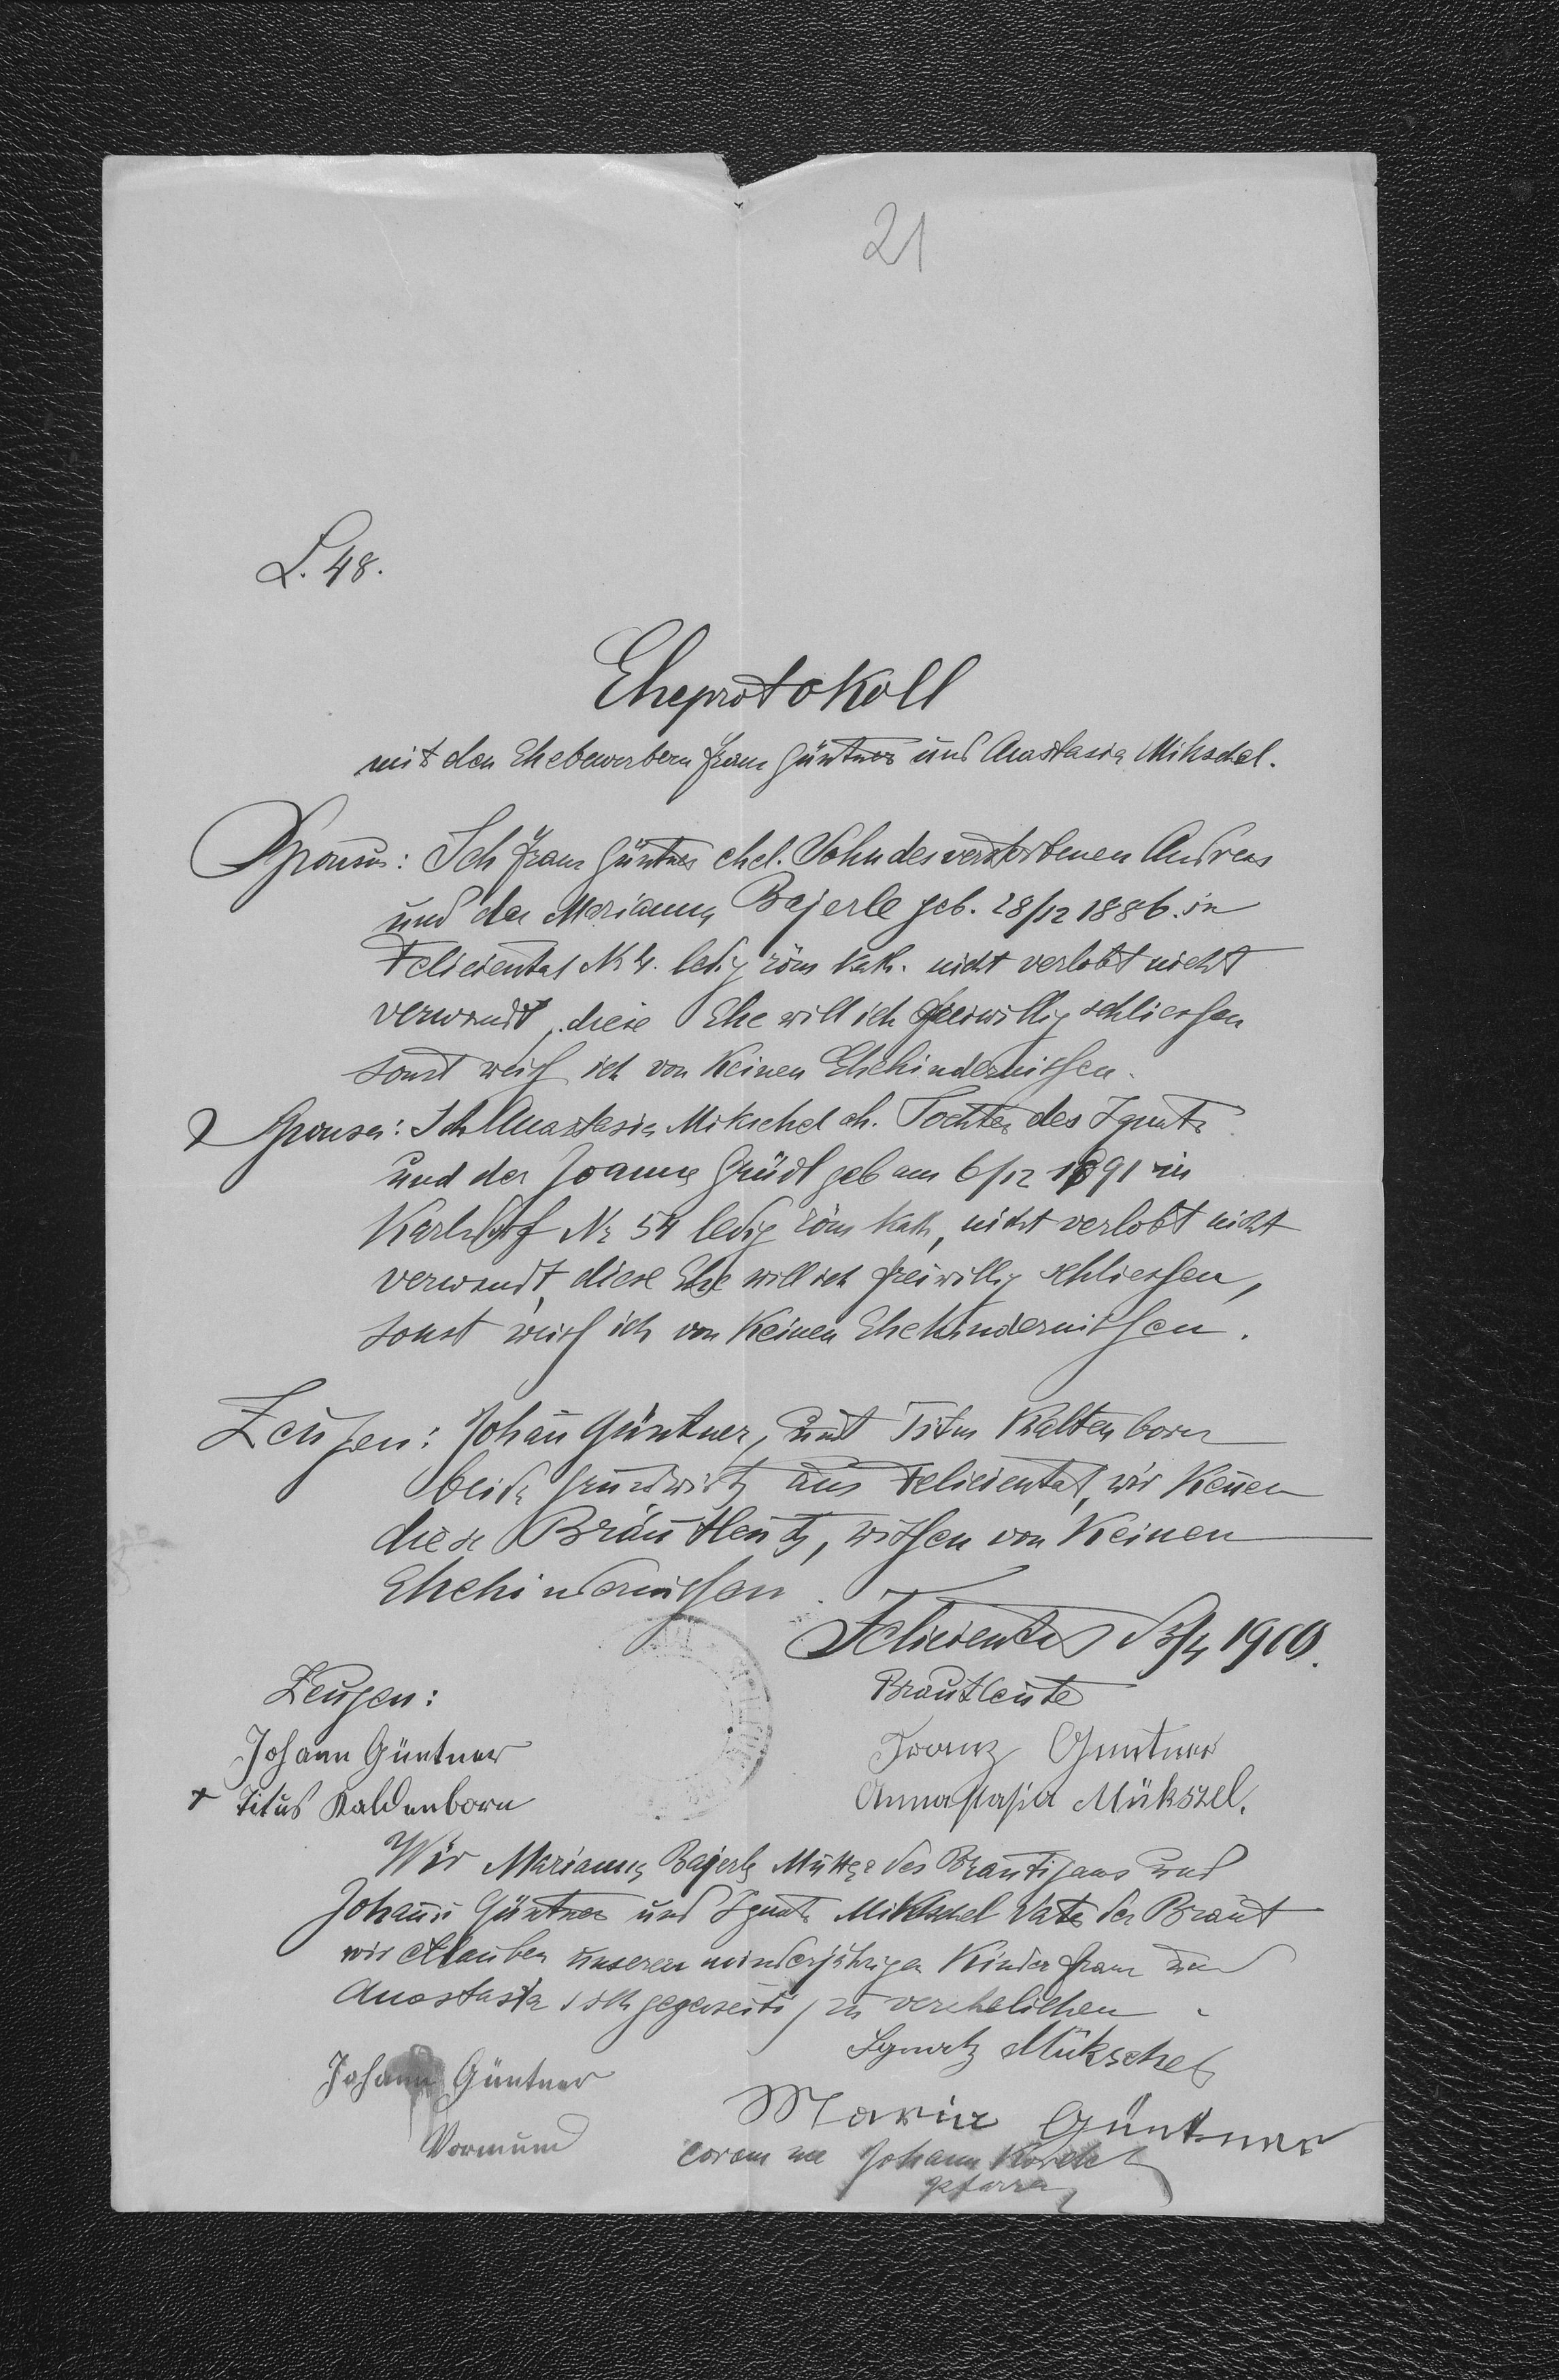 21
L. 48.
Eheprotokoll
mit den Ehebewerbern Franz Güntner und Anastasia Mikschel.
Sponsus: Ich Franz Güntner ehel. Sohn des verstorbenen Andreas
und der Marianna Bajerle geb. 28/12 1886. in
Feliciental N 4. ledig röm kath. nicht verlobt nicht
verwandt, diese Ehe will ich freiwillig schliessen
sonst weiss ich von keinen Ehehindernissen.
Sponsa: Ich Anastasia Mikschel eh. Tochter des Ignatz
und der Joanna Gründl geb am 6/12 1891 in
Karlsdorf Nr 54 ledig röm kath, nicht verlobt nicht
verwandt, diese Ehe will ich freiwillig schliessen,
sonst weiss ich von keinen Ehehindernissen.
Zeugen: Johan̄ Güntner, und Titus Kaltenborn
beide Grundwirte aus Feliciental, wir kennen
diese Brautleute, wissen von keinen
Ehehindernissen.
Feliciental 1900.
Zeugen:
Brautleute
Johann Güntner
Franz Guntner
+ Titus Kaldenborn
Annastasia Mükszel.
Wir Marianna Bajerle Mutter des Bräutigams und
Johann Güntner und Ignatz Mikschel Vater der Braut
wir erlauben unseren minderjährigen Kinder Franz und
Anastasia sich gegenseitig zu verehelichen.
Ignatz Mükschel
Johann Güntner
Maria Güntner
Vormund
coram me Johann
Pfarrer